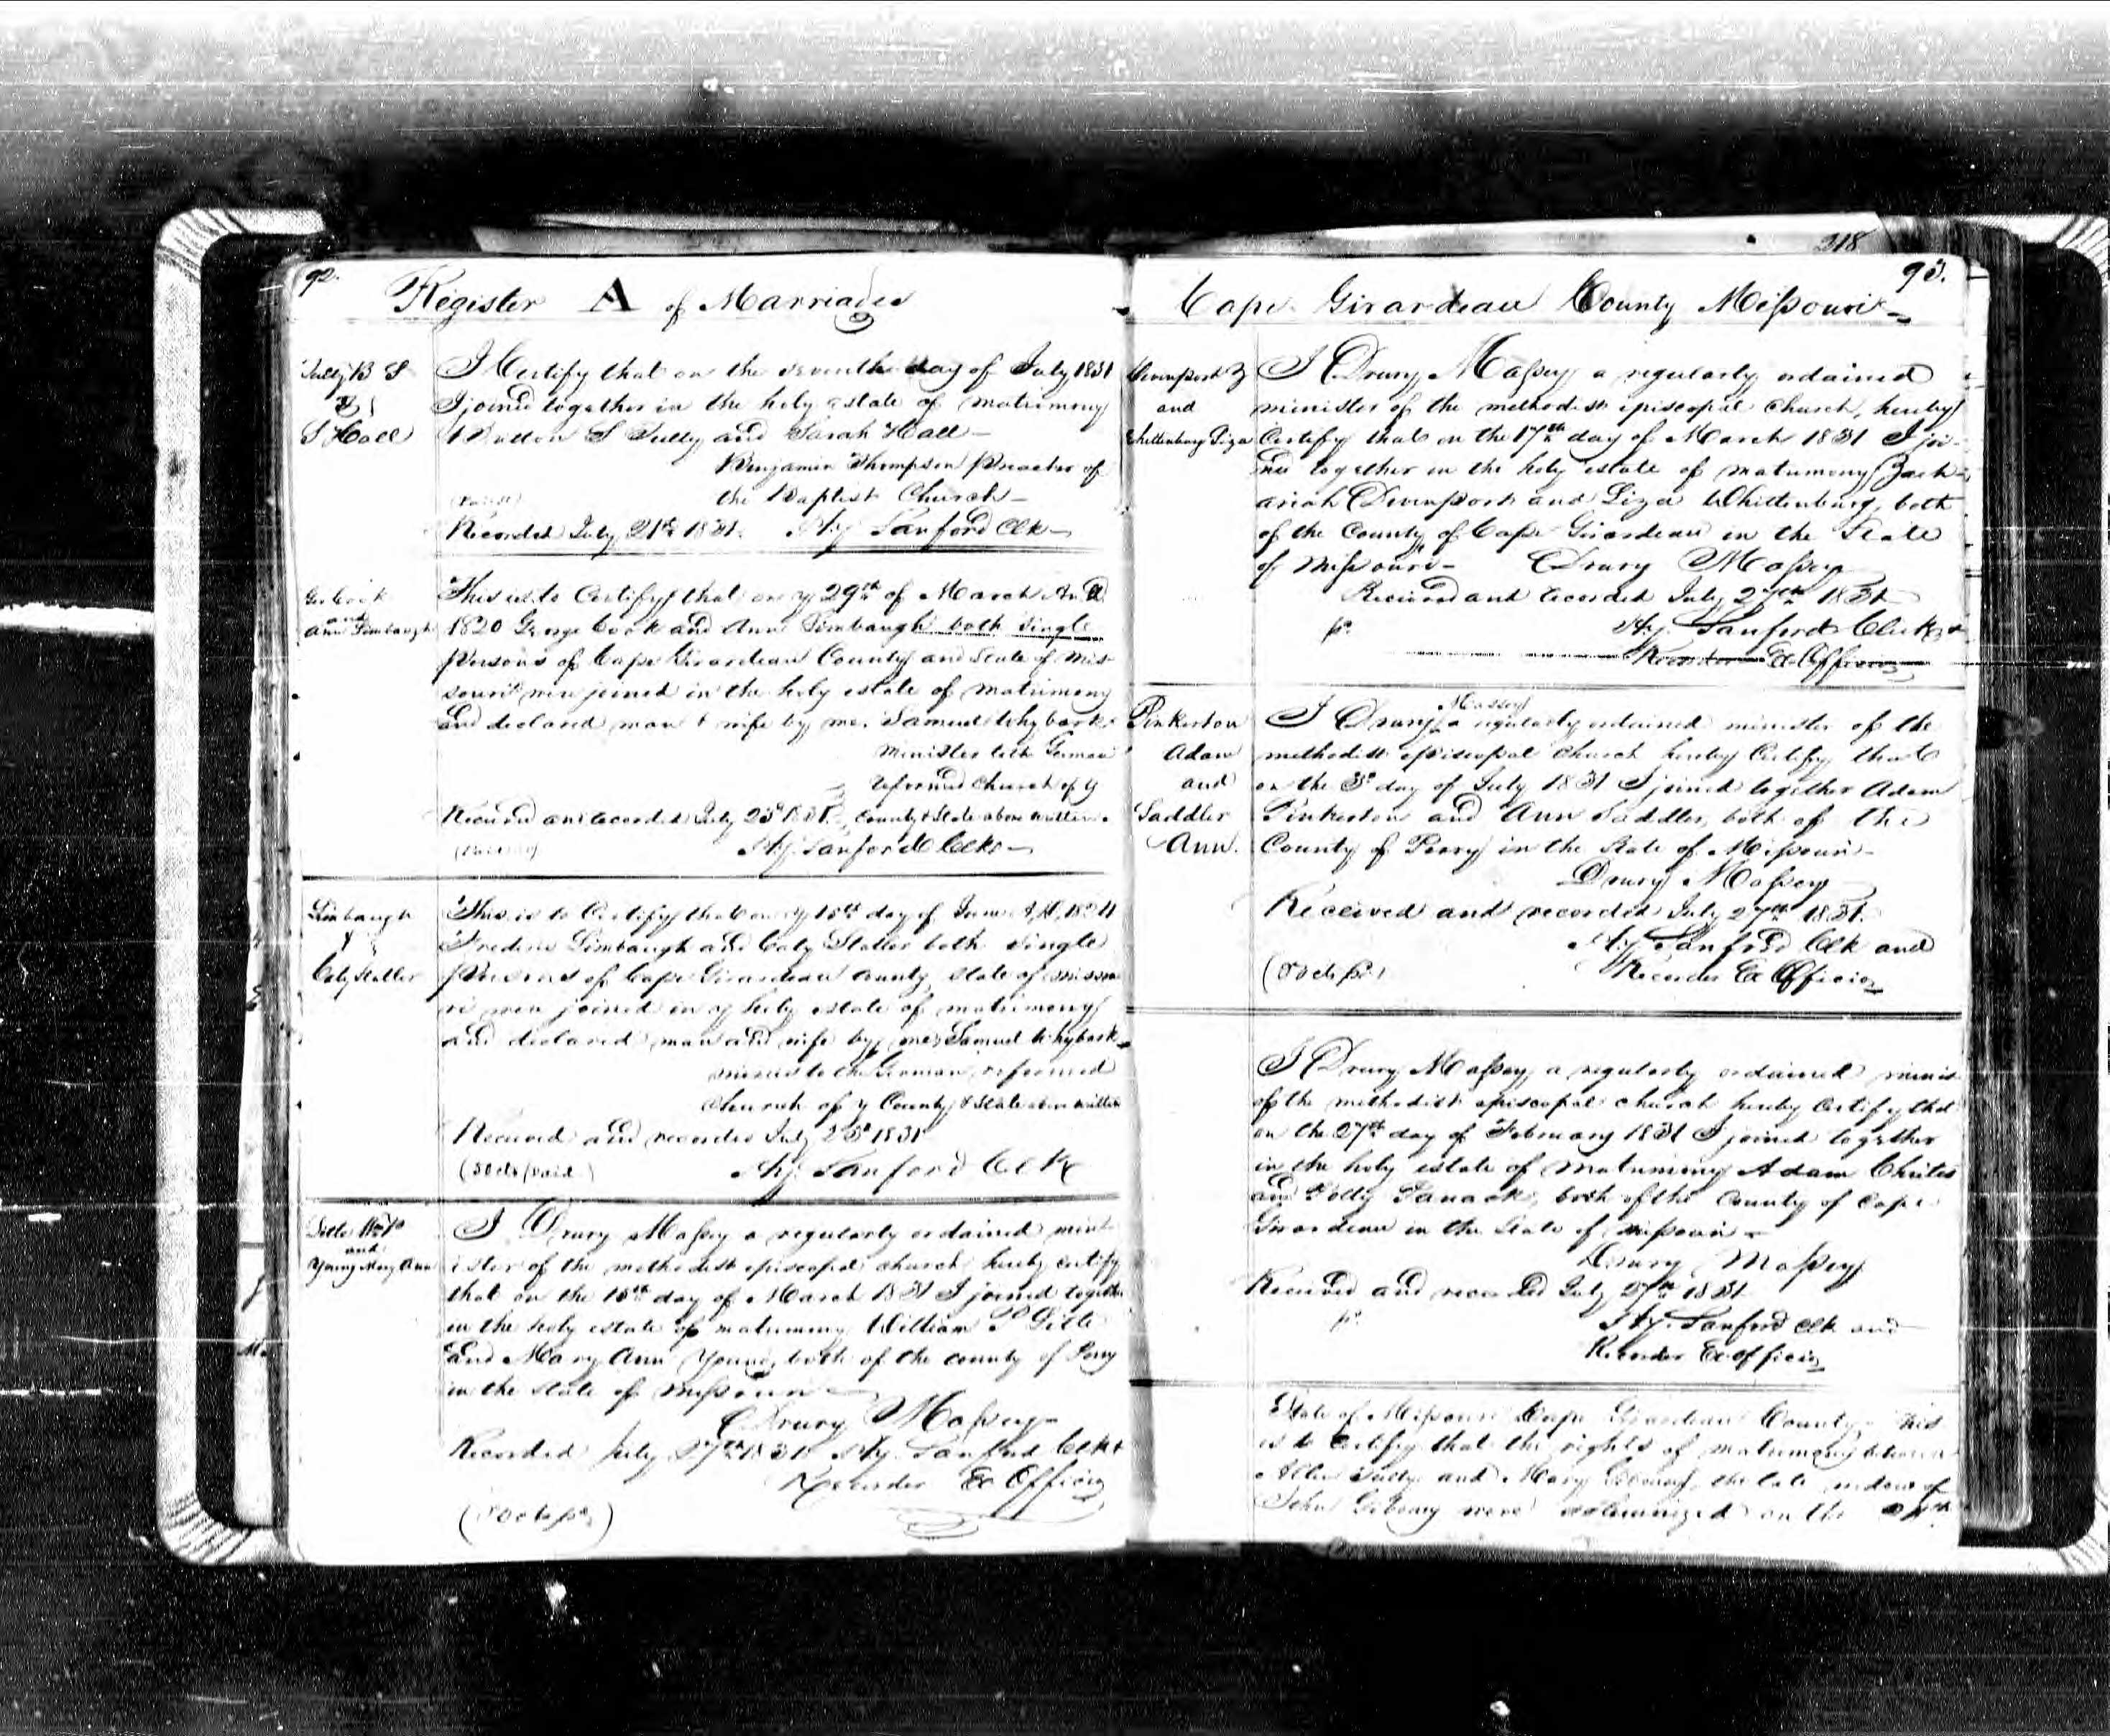 92.
Register A of Marriages
Tully B S
&
S Hall
I Certify that on the seventh day of July 1831
I joined together in the holy estate of matrimony
S Tully and Sarah Hall
Benjamin Thompson Preacher of
the Baptist Church
Recorded July 21st 1831. Hy Sanford Clk
Geo Cook
and
Ann Limbaugh
This is to Certify that on y 29th of March A D
1820 George Cook and Ann Limbaugh both single
Persons of Cape Girardeau County and State of Mis-
souri were joined in the holy estate of matrimony
and declared man & wife by me. Samuel Whybark
Minister to the German
reformed Church of y
County & State above written
Received and recorded July 23d 1831.
Hy Sanford Clk
Limbaugh
&
Caty Statler
This is to Certify that on y 18th day of June A, D,
Frederic Limbaugh and Caty Statler both single
persons of Cape Girardeau County State of missou
ri were joined in y holy estate of matrimony
and declared man and wife by me, Samuel Whybark
to the German reformed
Church of y County & State above written
Received and recorded July 23d 1831
(50 cts paid.)
Hy Sanford Clk
and
Young Mary Ann
I Drury Massey a regularly ordained min-
ister of the methodist episcopal church hereby certify
that on the day of March 1831 I joined together
in the holy estate of matrimony William P
and Mary Ann Young, both of the county of Perry
in the State of Missouri
Drury Massey
Recorded July 27th 1831 Hy. Sanford Clk &
Recorder Ex Officio
(50 cts pd)
218
93.
Cape Girardeau County Missouri
Devenport Z
and
Whittenburg Liza
I Drury Massey a regularly ordained
minister of the methodist episcopal church, hereby
Certify that on the 17th day of March 1831 I joi-
ned together in the holy estate of matrimony Zach-
ariah Devenport and Liza Whittenburg, both
of the County of Cape Girardeau in the State
of Missouri Drury Massey
Received and recorded July 27th 1831
pd.
Hy. Sanford Clerk &
Recorder Ex Officio
Pinkerton
Adam
and
Saddler
Ann.
Massey
I Drury a regularly ordained minister of the
methodist episcopal church hereby Certify that
on the 3d day of July 1831 I joined together Adam
Pinkerton and Ann Saddler, both of the
County of Perry in the State of Missouri
Drury Massey
Received and recorded July 27th 1831.
Hy Sanford Clk and
(50 cts pd)
Recorder Ex Officio
I Drury Massey a regularly ordained minis
of the methodist episcopal church hereby Certify that
on the 27th day of February 1831 I joined together
in the holy estate of matrimony Adam
and Polly both of the County of Cape
Girardeau in the State of Missouri
Drury Massey
Received and recorded July 27th 1831
pd.
Hy. Sanford Clk and
Recorder Ex officio
State of Missouri Cape Girardeau County This
is to Certify that the rights of matrimony between
Allen Tully and Mary Giboney, the late widow of
John Giboney were solemnized on the